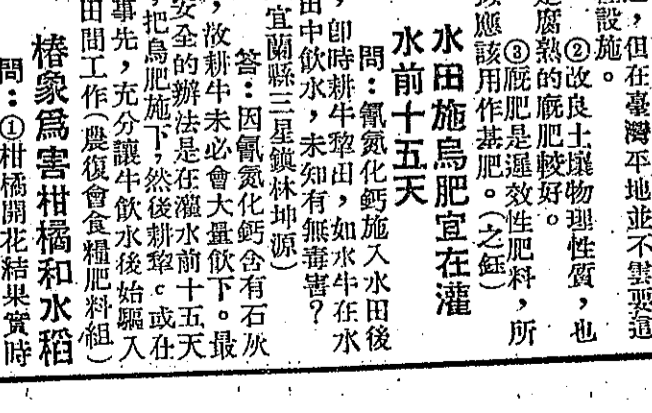 ，但在臺灣平地並不需要這
設施。
②改良土壤物理性質，也
是腐熟的廐肥較好。
③廐肥是遲效性肥料，所
應該用作基肥。（之鈺）
水田施烏肥宜在灌
水前十五天
問：氰氮化鈣施入水田後
，卽時耕牛犂田，如水牛在水
田中飲水，未知有無毒害？
宜蘭縣三星鎮林坤源）
答：因氰氮化鈣含有石灰
，故耕牛未必會大量飲下。最
安全的辦法是在灌水前十五天
，把烏肥施下，然後耕犂。或在
事先，充分讓牛飲水後始驅入
田間工作（農復會食糧肥料組）
椿象爲害柑橘和水稻
問：①柑橘開花結果實時